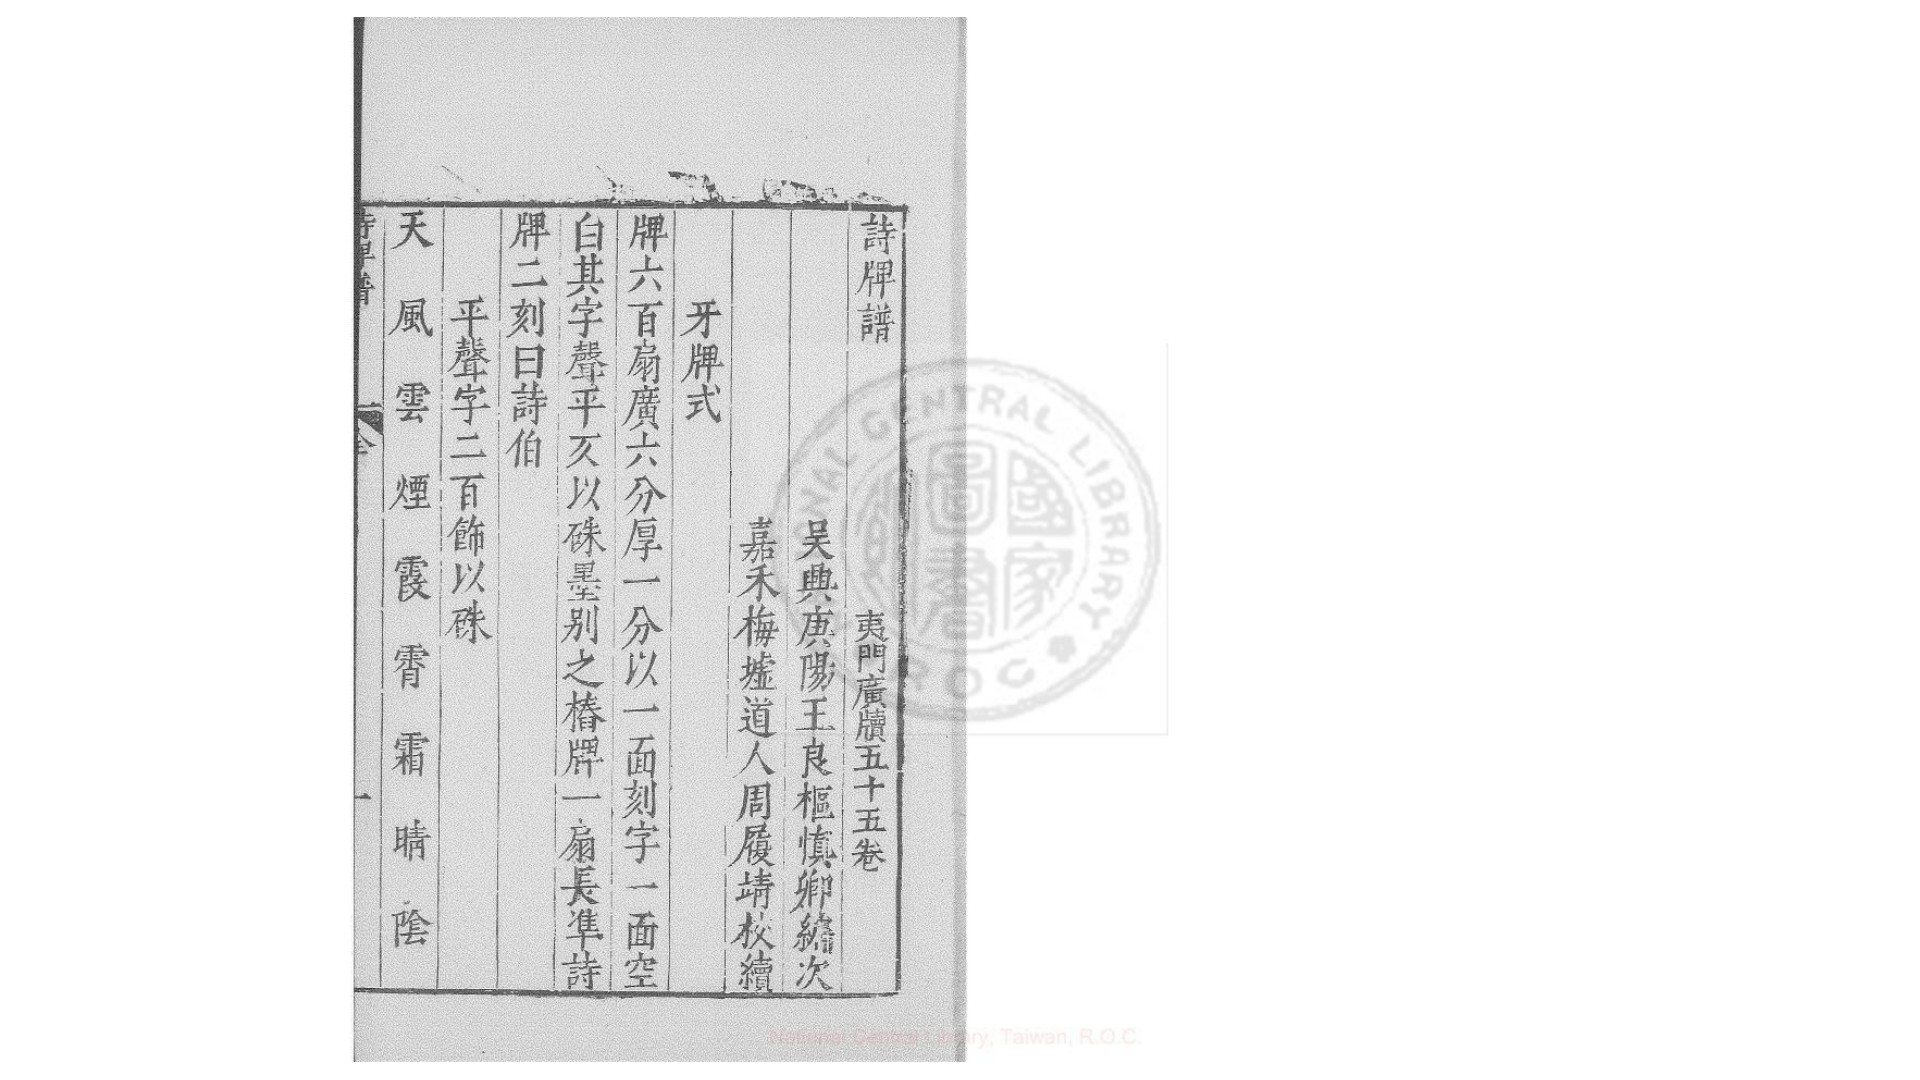 詩牌譜 夷門廣牘五十五卷
吳興庚陽王良樞慎卿編次
嘉禾梅墟道人周履靖校續
牙牌式
牌六百扇廣六分厚一分以一面刻字一面空
白其字聲平仄以硃墨别之樁牌一扇長準詩
牌二刻曰詩伯
平聲字二百飾以硃
天 風 雲 煙 霞 霄 霜 晴 陰
詩牌譜 全 一
國家圖書
NATIONAL CENTRAL LIBRARY R O C
National Central Library, Taiwan, R.O.C.